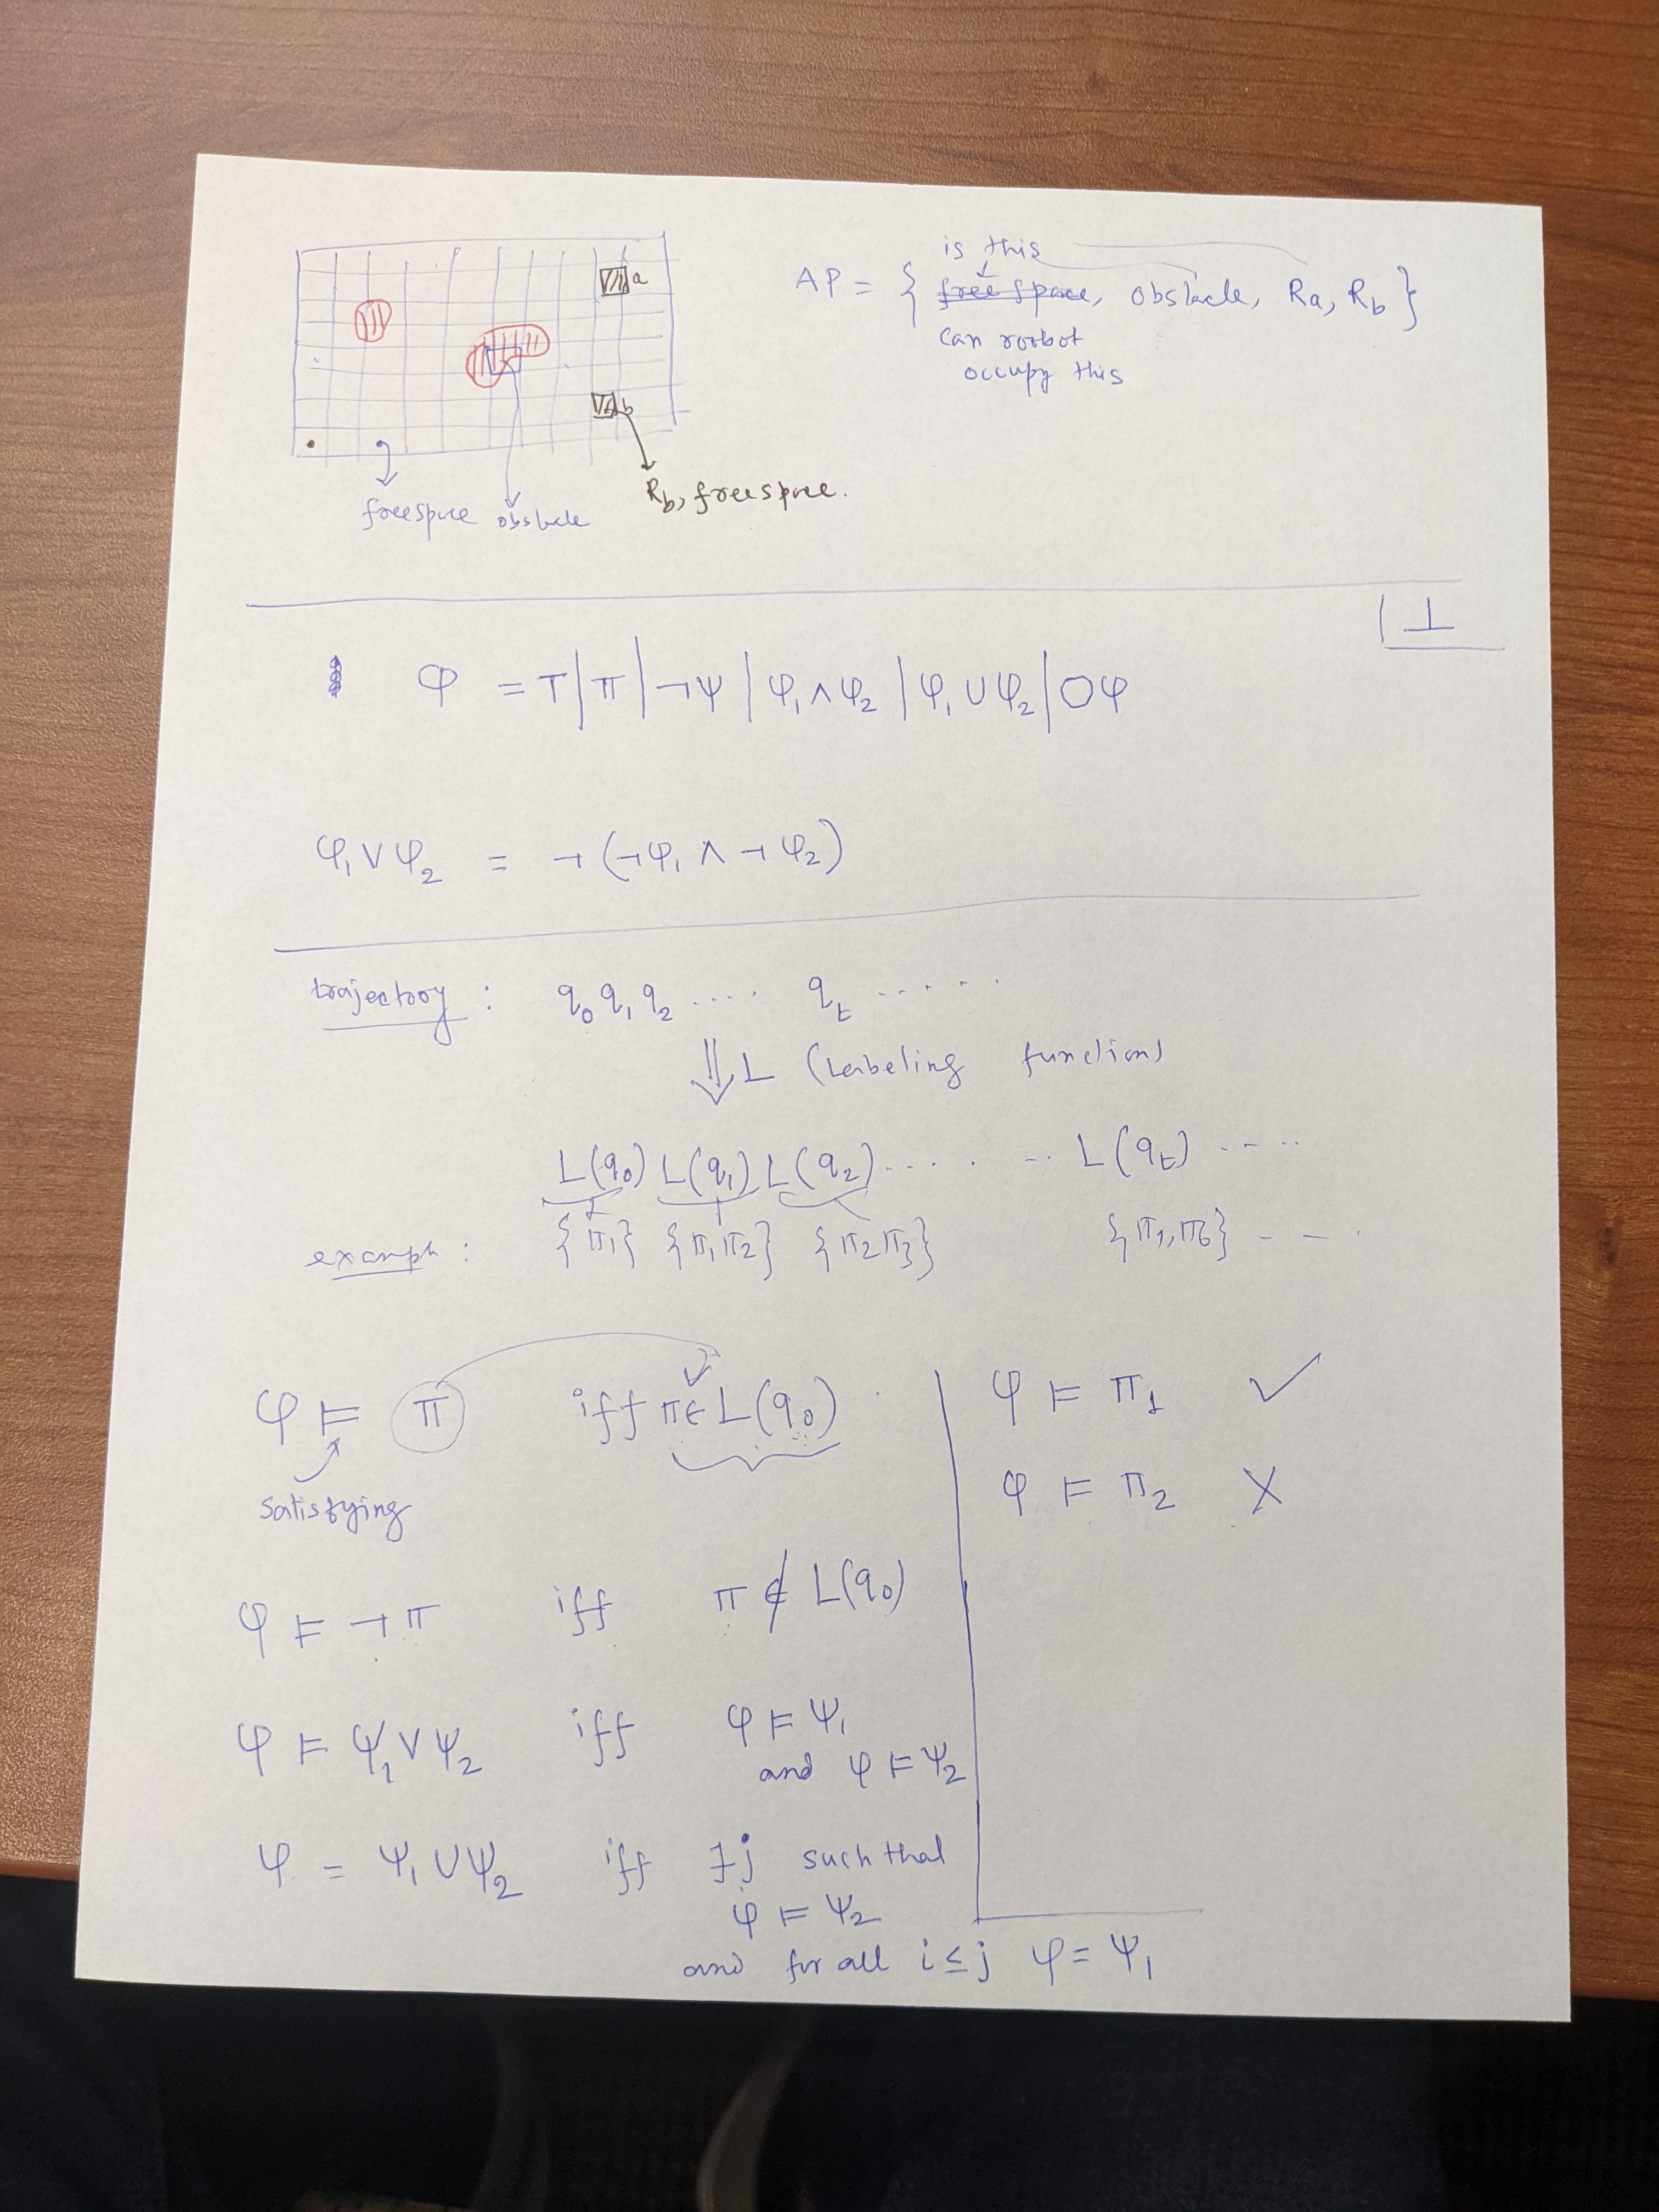 is this
AP = { free space, obstacle, Ra, R_b }
can roobot
occupy this
a
b
freespace obstacle
R_b, freespace.
| ⊥
φ = T | π | ¬φ | φ₁ ∧ φ₂ | φ₁ ∪ φ₂ | ○φ
φ₁ ∨ φ₂ = ¬(¬φ₁ ∧ ¬φ₂)
trajectory : q₀ q₁ q₂ .... q_t ......
⇓ L (Labeling function)
L(q₀) L(q₁) L(q₂) ..... .. L(q_t) .....
example : {π₁} {π₁π₂} {π₂π₃} {π₁,π₆} - - .
φ ⊨ π iff π ∈ L(q₀)
satisfying
φ ⊨ π₁ ✓
φ ⊨ π₂ X
φ ⊨ ¬π iff π ∉ L(q₀)
φ ⊨ ψ₁ ∨ ψ₂ iff φ ⊨ ψ₁
and φ ⊨ ψ₂
φ = ψ₁ ∪ ψ₂ iff ∃j such that
φ ⊨ ψ₂
and for all i ≤ j φ = ψ₁